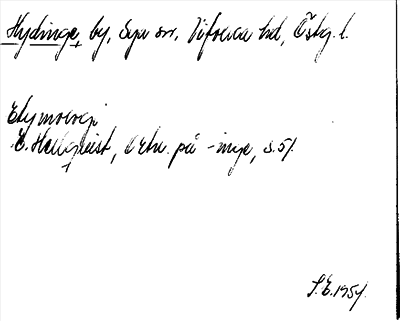 Hydinge, by, Sya sn, Vifolka hd, Östg. l.
Etymologi
E. Hellquist, Ortn. på -inge, s. 51.
S.E. 1954.